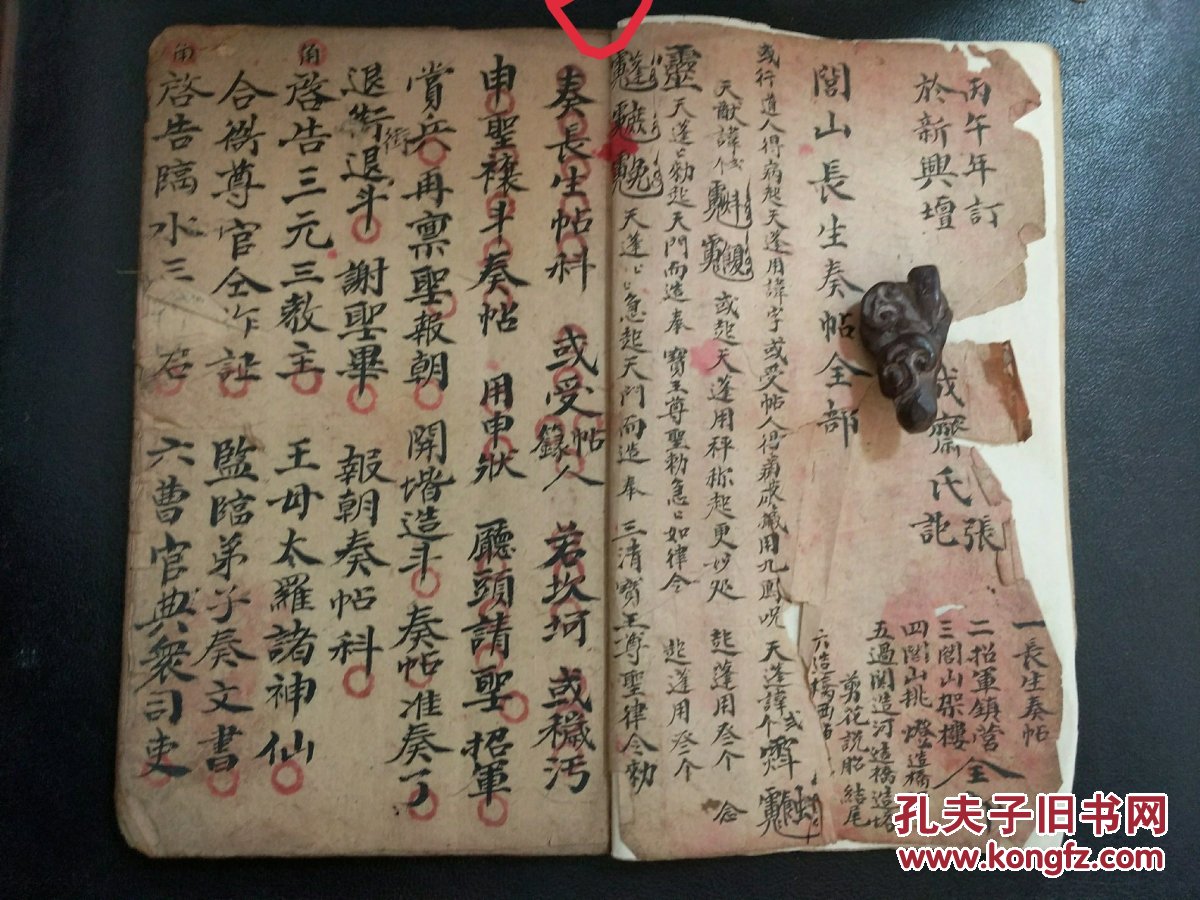 丙午年訂
於新興壇
戒齋氏張記
閭山長生奏帖全部
一長生奏帖
二招軍鎮营
三閭山架樓
四閭山挑燈造橋
全
五過関造河造橋造塔
剪花説胎結尾
六造橋西
或行道人得病起天蓬用諱字或受帖人得病戒藏用九鳳呪
天蓬諱个
或
天猷諱
或起天蓬用秤称起更妙処
起蓬用灮个
念
靈
天蓬〻勅起天門而造奉
寶王尊聖勅急〻如律令
起蓬用灮个
天蓬〻急起天門而造奉
三清寶王尊聖律令勅
奏長生帖科
或受帖錄人
若坎坷或穢污
申聖禳斗奏帖
用申狀
廳頭請聖招軍
賞兵再禀聖報朝
開堦造斗
奏帖准奏了
退衙退斗
衙
謝聖畢
報朝奏帖科
角
啓告三元三教主
王母太羅諸神仙
合衙尊官仝作証
監臨弟子奏文書
角
啓告臨水三
六曹官典衆司吏
孔夫子旧书网
www.kongfz.com